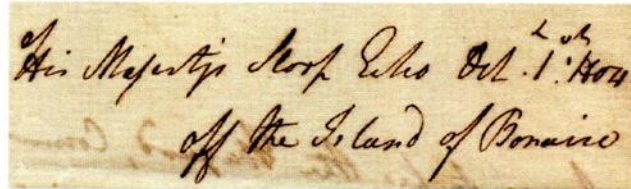 His Majestys Sloop Echo Oct. 1. 1804
off the Island of Bonaire